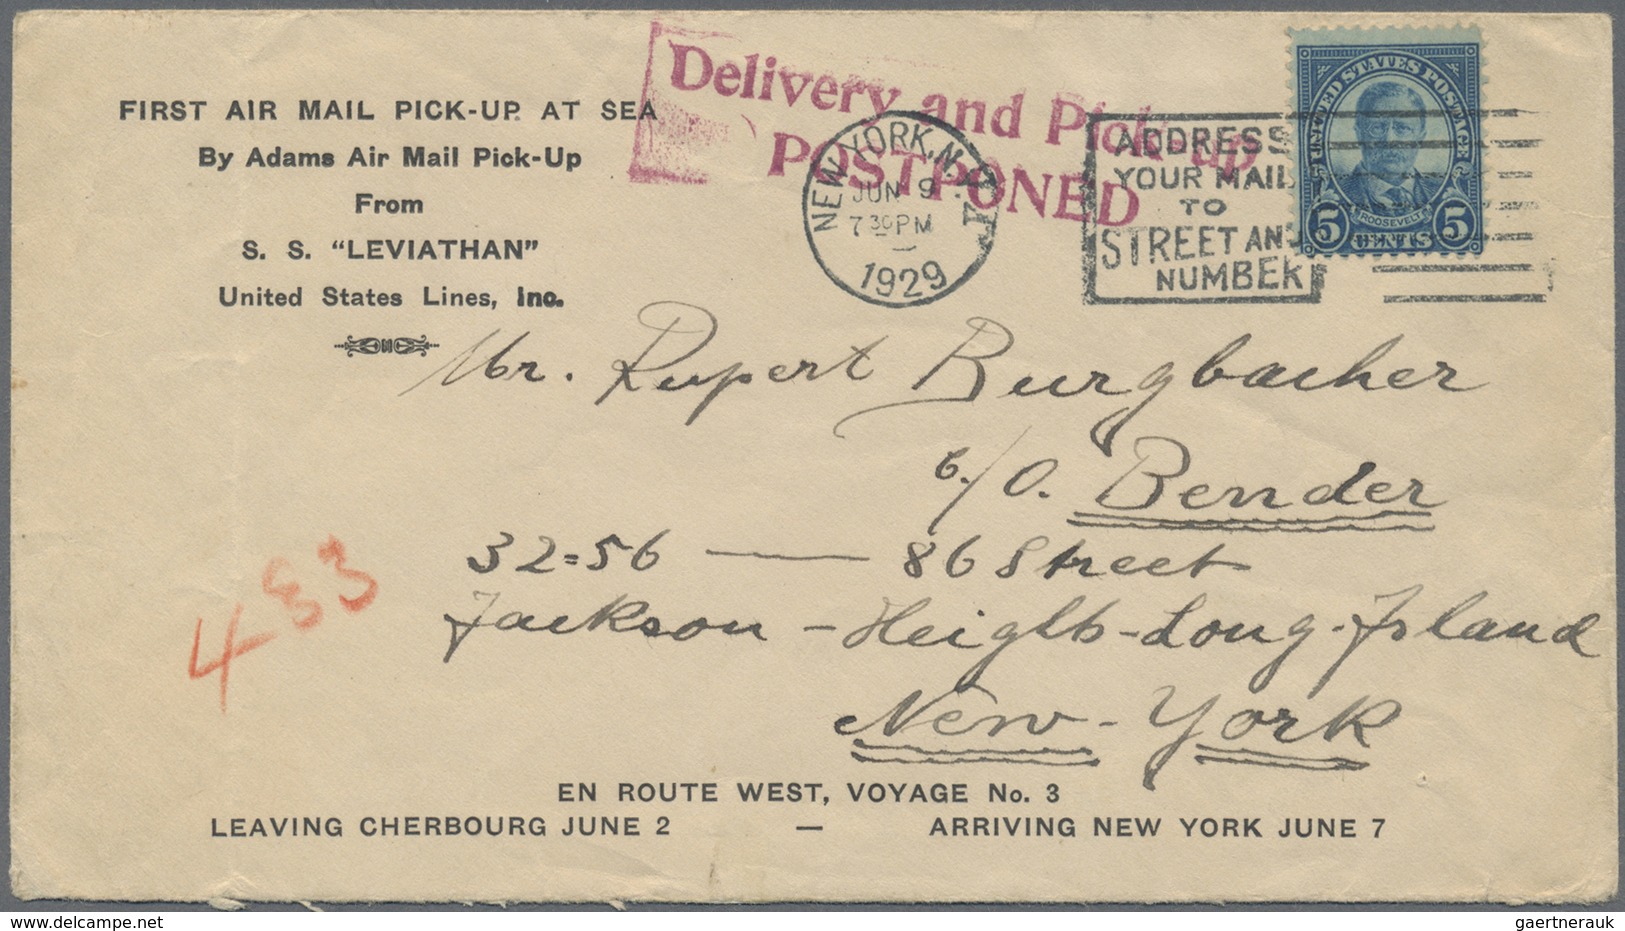 FIRST AIR MAIL PICK-UP AT SEA
By Adams Air Mail Pick-Up
From
S. S. "LEVIATHAN"
United States Lines, Inc.
Delivery and Pick-up
POSTPONED
NEW YORK, N.Y.
JUN 9
7 30 PM
1929
ADDRESS
YOUR MAIL
TO
STREET AND
NUMBER
UNITED STATES POSTAGE
ROOSEVELT
5 CENTS 5
Mr. Rupert Burgbacher
c./O. Bender
32=56 — 86 Street
Jackson - Heights - Long - Island
New - York
483
EN ROUTE WEST, VOYAGE No. 3
LEAVING CHERBOURG JUNE 2 — ARRIVING NEW YORK JUNE 7
gaertnerauk